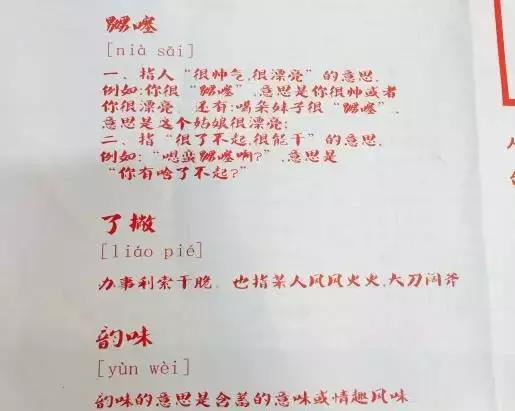 嬲噻
[nià sǎi]
一、指人“很帅气,很漂亮”的意思,
例如:你很“嬲噻”,意思是你很帅或者
你很漂亮，还有:喝朵妹子很“嬲噻”,
意思是这个姑娘很漂亮;
二、指“很了不起,很能干”的意思,
例如:“嗯蛮嬲噻啊?”,意思是
“你有啥了不起?”
了撇
[liáo pié]
办事利索干脆，也指某人风风火火,大刀阔斧
韵味
[yùn wèi]
韵味的意思是含蓄的意味或情趣风味